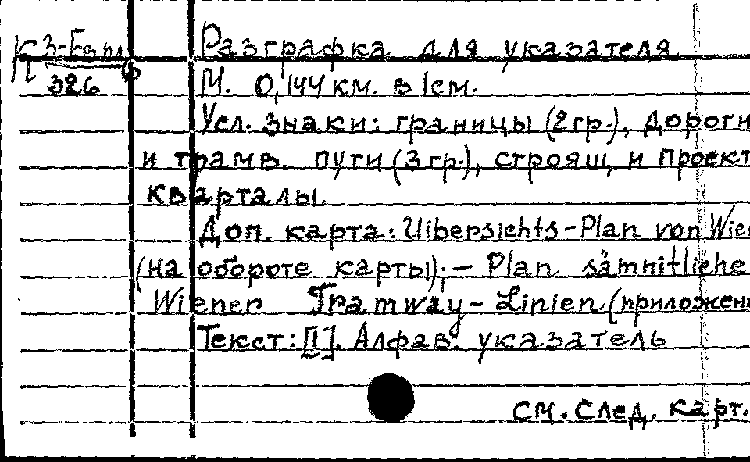 К 3-Бврл
326
Разграфка для указателя
М. 0,144 км. в 1см.
Усл. знаки: границы (2гр.), дороги
и трамв. пути (3гр.), строящ. и проект
кварталы
Доп. карта: Uibersichts-Plan von Wien
(на обороте карты); – Plan sämmtliche
Wiener Tramway-Linien (приложени
Текст: [1]. Алфав. указатель
см. след. карт.